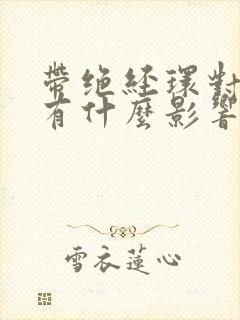 帶絕經環對
有什麼影響
雪衣蓮心